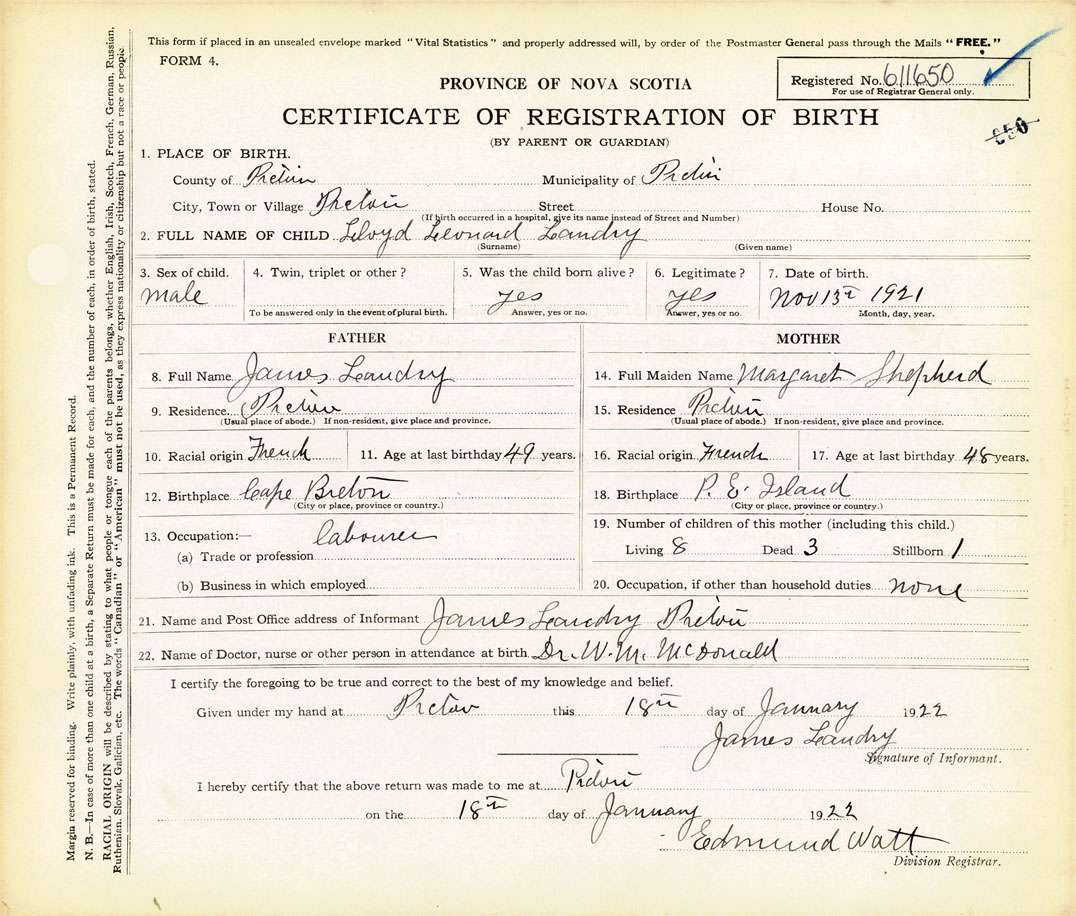 This form if placed in an unsealed envelope marked "Vital Statistics" and properly addressed will, by order of the Postmaster General pass through the Mails "FREE."
FORM 4.
PROVINCE OF NOVA SCOTIA
Registered No. 611650
For use of Registrar General only.
CERTIFICATE OF REGISTRATION OF BIRTH
(BY PARENT OR GUARDIAN)
650
1. PLACE OF BIRTH.
County of Pictou Municipality of Pictou
City, Town or Village Pictou Street House No.
(If birth occurred in a hospital, give its name instead of Street and Number)
2. FULL NAME OF CHILD Lloyd Leonard Landry
(Surname) (Given name)
3. Sex of child. 4. Twin, triplet or other? 5. Was the child born alive? 6. Legitimate? 7. Date of birth.
male yes yes Nov 13th 1921
To be answered only in the event of plural birth. Answer, yes or no. Answer, yes or no. Month, day, year.
FATHER
8. Full Name James Landry
9. Residence Pictou
(Usual place of abode.) If non-resident, give place and province.
10. Racial origin French 11. Age at last birthday 49 years.
12. Birthplace Cape Breton
(City or place, province or country.)
13. Occupation:— labourer
(a) Trade or profession
(b) Business in which employed
MOTHER
14. Full Maiden Name Margaret Shepherd
15. Residence Pictou
(Usual place of abode.) If non-resident, give place and province.
16. Racial origin French 17. Age at last birthday 48 years.
18. Birthplace P. E. Island
(City or place, province or country.)
19. Number of children of this mother (including this child.)
Living 8 Dead 3 Stillborn 1
20. Occupation, if other than household duties none
21. Name and Post Office address of Informant James Landry Pictou
22. Name of Doctor, nurse or other person in attendance at birth Dr. W. M. McDonald
I certify the foregoing to be true and correct to the best of my knowledge and belief.
Given under my hand at Pictou this 18th day of January 1922
James Landry
Signature of Informant.
I hereby certify that the above return was made to me at Pictou
on the 18th day of January 1922
Edmund Watt
Division Registrar.
Margin reserved for binding. Write plainly, with unfading ink. This is a Permanent Record.
N. B.—In case of more than one child at a birth, a Separate Return must be made for each, and the number of each, in order of birth, stated.
RACIAL ORIGIN will be described by stating to what people or tongue each of the parents belongs, whether English, Irish, Scotch, French, German, Russian,
Ruthenian, Slovak, Galician, etc. The words "Canadian" or "American" must not be used, as they express nationality or citizenship but not a race or people.